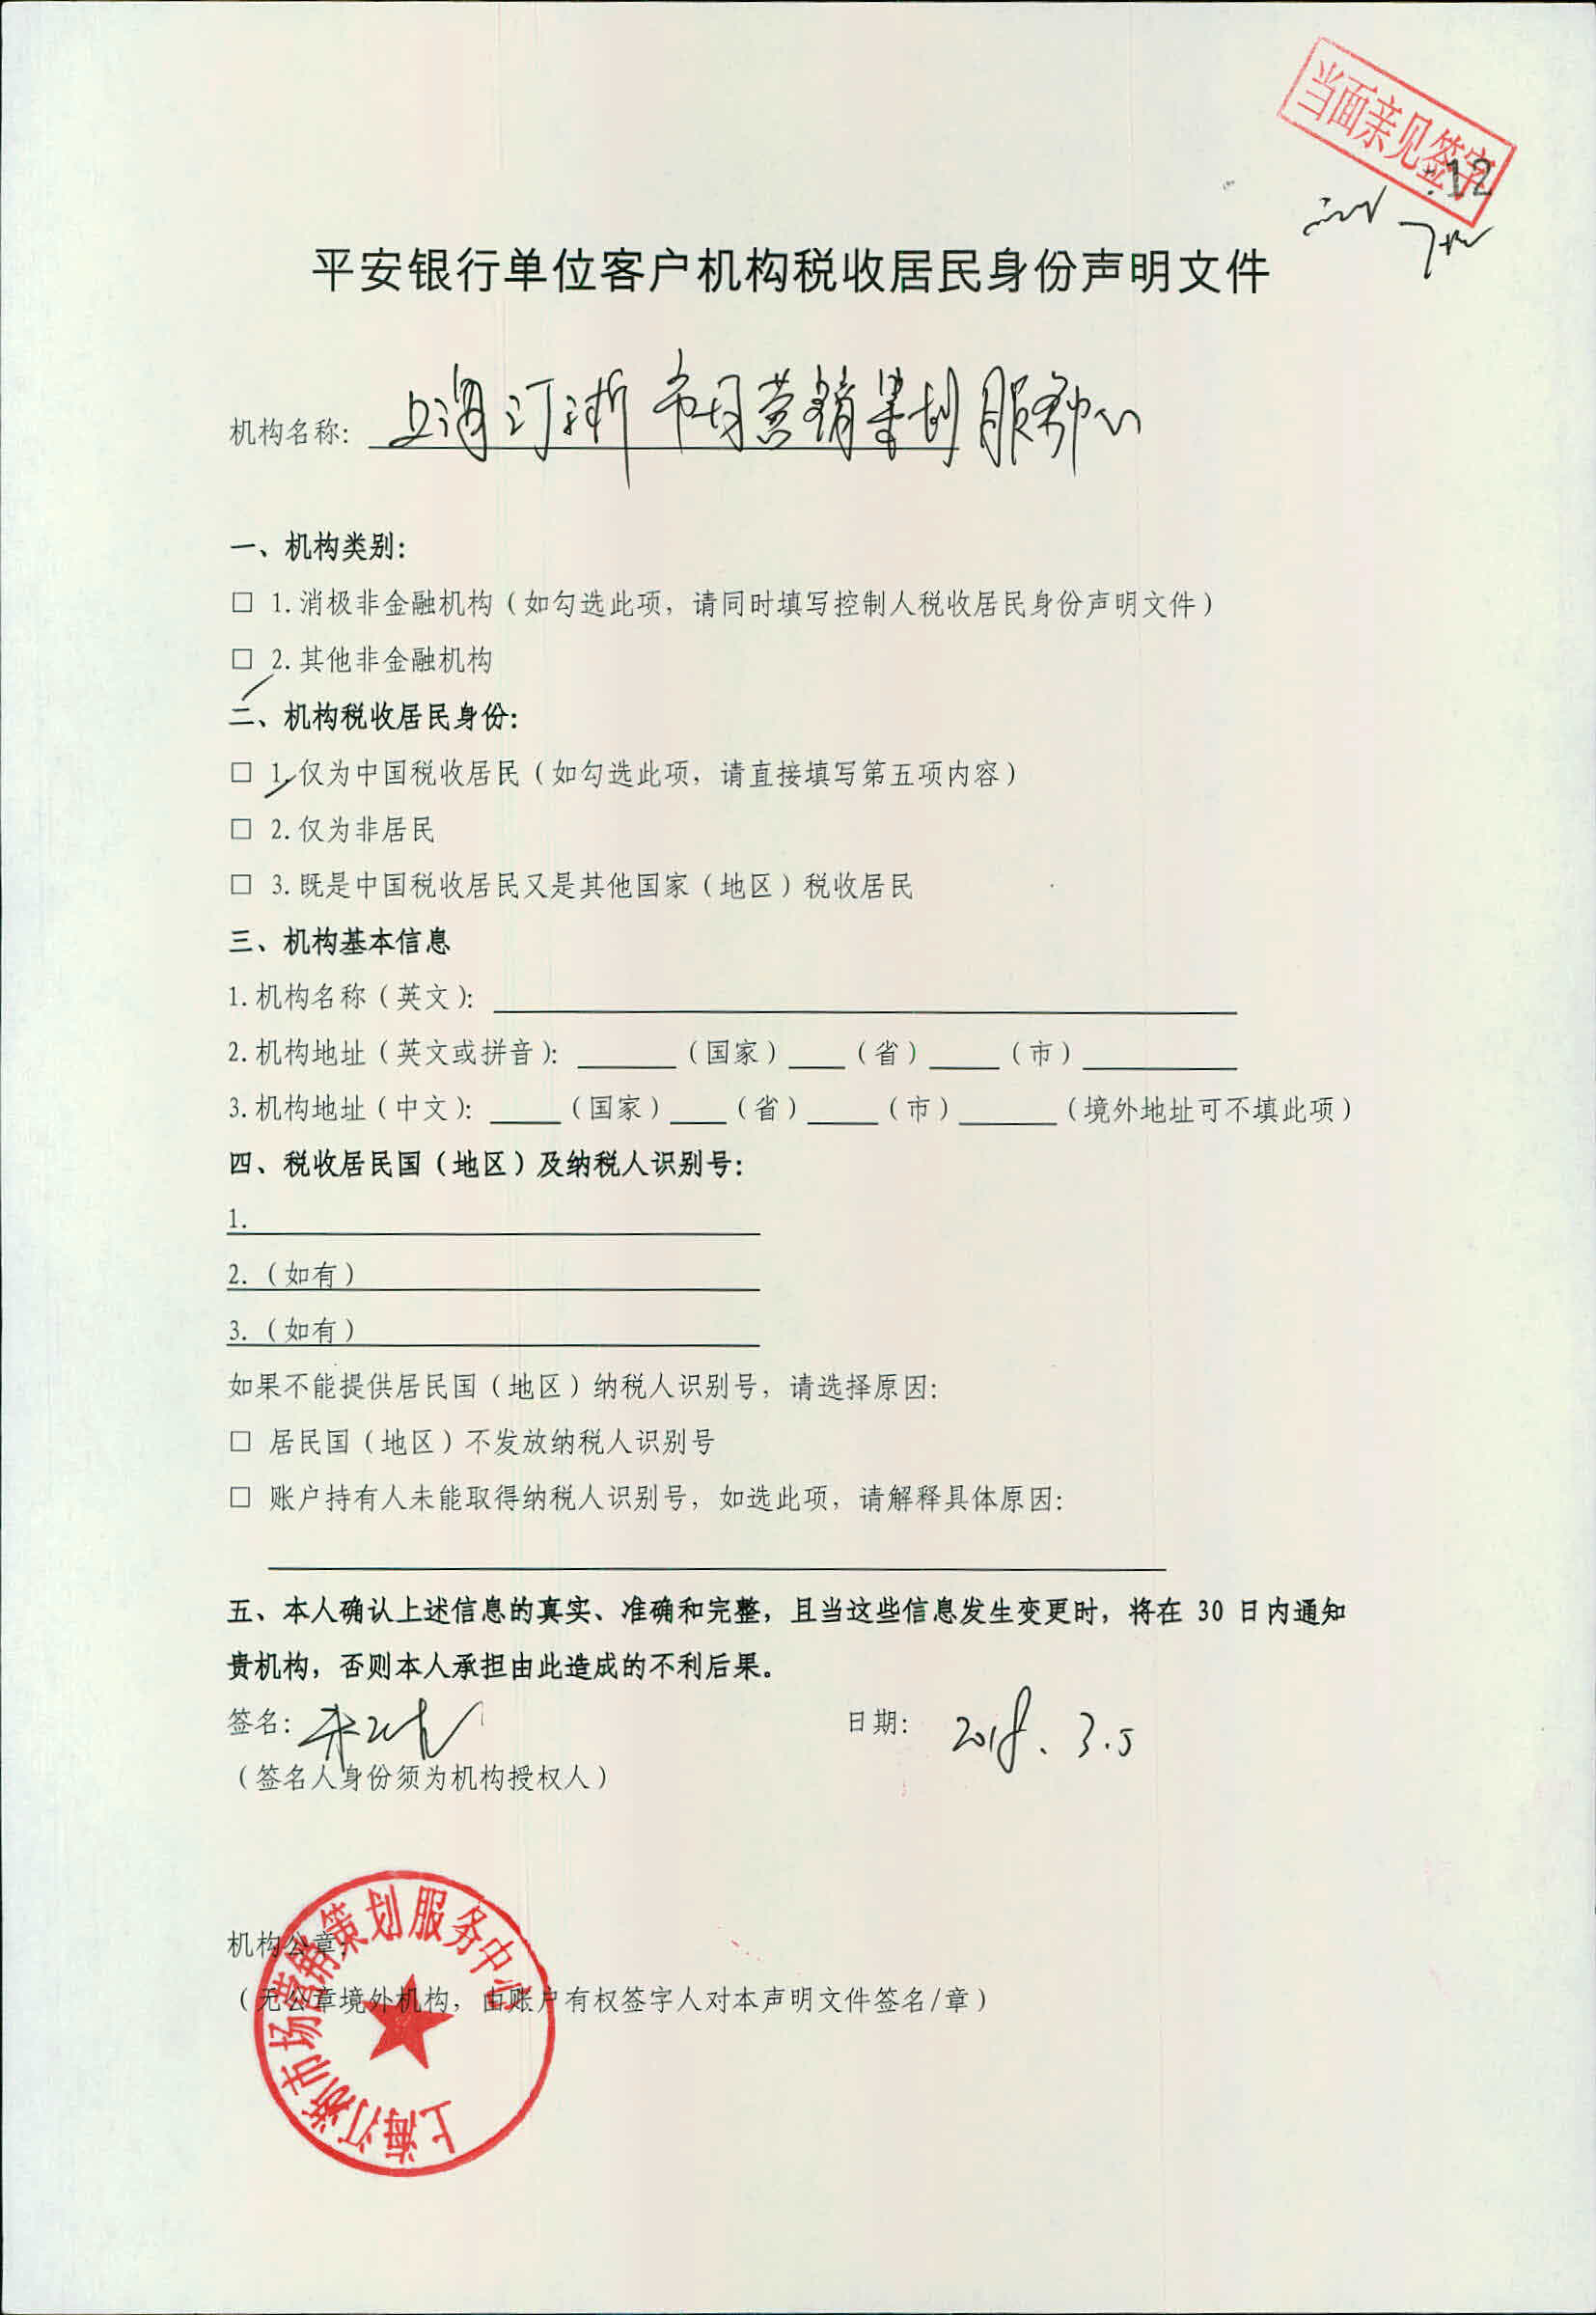 当面亲见签字
:12
平安银行单位客户机构税收居民身份声明文件
机构名称: 上海汀浙市场营销策划服务中心
一、机构类别:
□ 1.消极非金融机构（如勾选此项，请同时填写控制人税收居民身份声明文件）
□ 2.其他非金融机构
二、机构税收居民身份:
□ 1.仅为中国税收居民（如勾选此项，请直接填写第五项内容）
□ 2.仅为非居民
□ 3.既是中国税收居民又是其他国家（地区）税收居民
三、机构基本信息
1.机构名称（英文）:
2.机构地址（英文或拼音）: （国家） （省） （市）
3.机构地址（中文）: （国家） （省） （市） （境外地址可不填此项）
四、税收居民国（地区）及纳税人识别号:
1.
2.（如有）
3.（如有）
如果不能提供居民国（地区）纳税人识别号，请选择原因:
□ 居民国（地区）不发放纳税人识别号
□ 账户持有人未能取得纳税人识别号，如选此项，请解释具体原因:
五、本人确认上述信息的真实、准确和完整，且当这些信息发生变更时，将在 30 日内通知
贵机构，否则本人承担由此造成的不利后果。
签名: 日期: 2018.3.5
（签名人身份须为机构授权人）
机构公章:
（无公章境外机构，由账户有权签字人对本声明文件签名/章）
上海汀浙市场营销策划服务中心